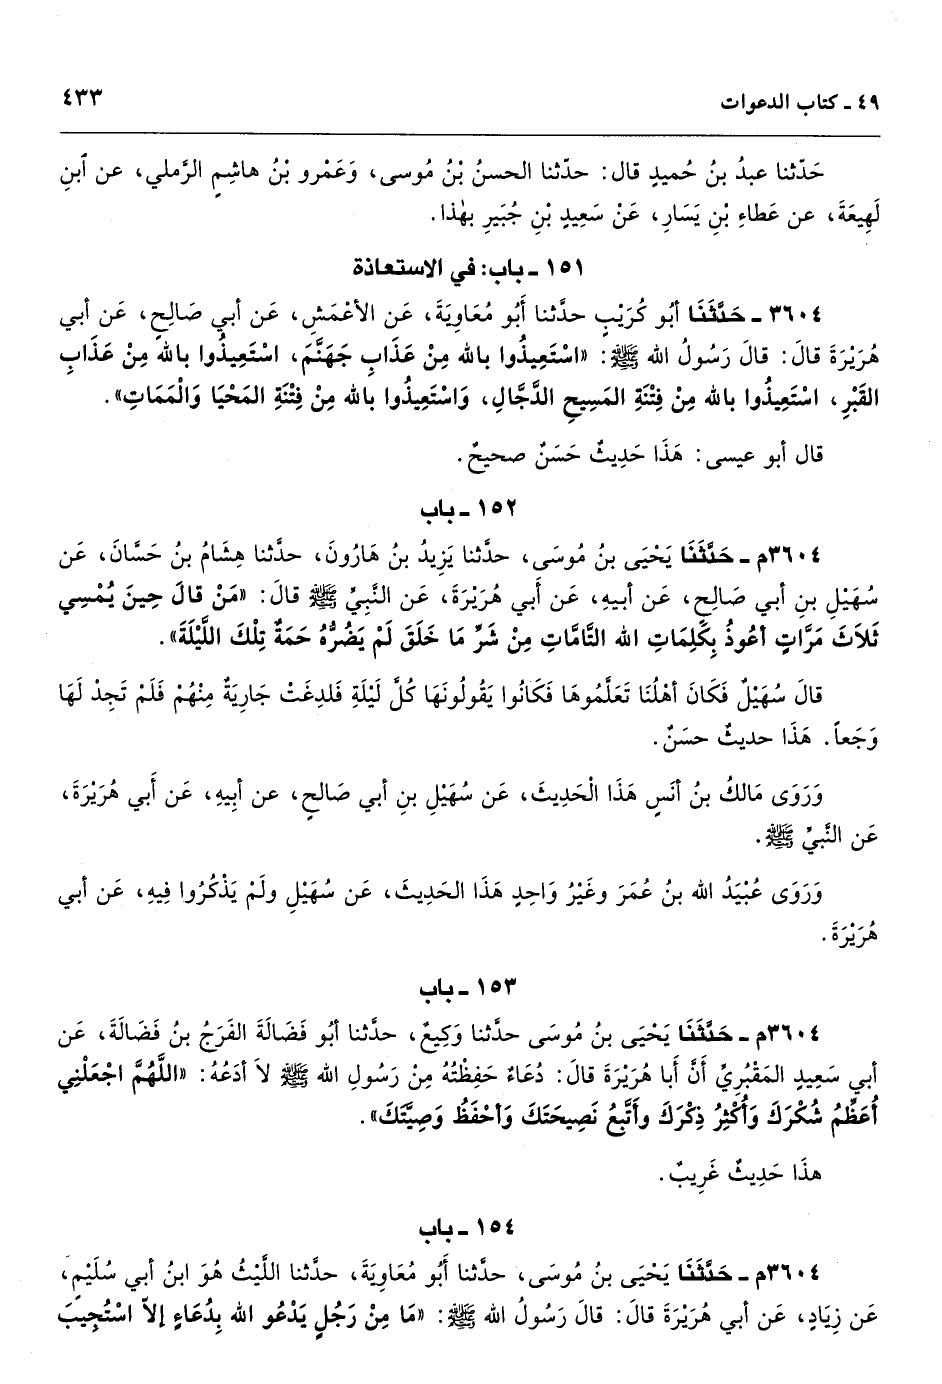 ٤٩ ـ كتاب الدعوات ٤٣٣
حَدّثنا عبدُ بنُ حُميدٍ قال: حدّثنا الحسنُ بْنُ مُوسى، وَعَمْرو بْنُ هاشِمٍ الرَّملي، عن ابنِ
لَهِيعَةَ، عن عَطاءِ بْنِ يَسَارِ، عَنْ سَعِيدِ بْنِ جُبَيرِ بهٰذا.
١٥١ ـ باب: في الاستعاذة
٣٦٠٤ ـ حَدَّثَنَا أبُو كُرَيْبٍ حدَّثنا أَبُو مُعَاوِيَةَ، عَن الأعْمَشِ، عَن أبي صَالِحٍ، عَن أبي
هُرَيْرَةَ قالَ: قالَ رَسُولُ الله ﷺ: «اسْتَعِيذُوا بالله مِنْ عَذَابِ جَهَنَّمَ، اسْتَعِيذُوا بالله مِنْ عَذَابِ
القَبْرِ، اسْتَعِيذُوا بالله مِنْ فِتْنَةِ المَسِيحِ الدَّجَّالِ، وَاسْتَعِيذُوا بالله مِنْ فِتْنَةِ المَحْيَا وَالْمَمَاتِ».
قال أبو عيسى: هَذَا حَدِيثٌ حَسَنٌ صحيحٌ.
١٥٢ ـ باب
٣٦٠٤م ـ حَدَّثَنَا يَحْيَى بنُ مُوسَى، حدَّثنا يَزِيدُ بنُ هَارُونَ، حدَّثنا هِشَامُ بنُ حَسَّانَ، عَن
سُهَيْلِ بنِ أبي صَالِحٍ، عَن أبيهِ، عَن أَبي هُرَيْرَةَ، عَن النَّبيِّ ﷺ قالَ: «مَنْ قالَ حِينَ يُمْسِي
ثَلاَثَ مَرَّاتٍ أعُوذُ بِكَلِمَاتِ الله التَّامَّاتِ مِنْ شَرِّ مَا خَلَقَ لَمْ يَضُرُّهُ حَمَةٌ تِلْكَ اللَّيْلَةَ».
قالَ سُهَيْلٌ فَكَانَ أهْلُنَا تَعَلَّمُوهَا فَكَانُوا يَقُولُونَهَا كُلَّ لَيْلَةٍ فَلدِغَتْ جَارِيَةٌ مِنْهُمْ فَلَمْ تَجِدْ لَهَا
وَجَعاً. هَذَا حديثٌ حسَنٌ.
وَرَوَى مَالكُ بنُ أنَسٍ هَذَا الْحَدِيثَ، عَن سُهَيْلِ بنِ أبي صَالحٍ، عن أبِيهِ، عَن أَبي هُرَيْرَةَ،
عَن النَّبيِّ ﷺ.
وَرَوَى عُبَيَدُ الله بنُ عُمَرَ وغَيْرُ وَاحِدٍ هَذَا الحَدِيثَ، عَن سُهَيْلٍ ولَمْ يَذْكُرُوا فِيهِ، عَن أبي
هُرَيْرَةَ.
١٥٣ ـ باب
٣٦٠٤م ـ حَدَّثَنَا يَحْيَى بنُ مُوسَى حدَّثنا وَكِيعٌ، حدَّثنا أبُو فَضَالَةَ الفَرَجُ بنُ فَضَالَةَ، عَن
أبي سَعِيدٍ المَقْبُرِيِّ أنَّ أبا هُرَيْرَةَ قالَ: دُعَاءٌ حَفِظْتُهُ مِنْ رَسُولِ الله ﷺ لاَ أدَعُهُ: «اللَّهُمَّ اجْعَلْنِي
أُعَظِّمُ شُكْرَكَ وَأُكْثِرُ ذِكْرَكَ وأَتَّبِعُ نَصِيحَتَكَ وَأحْفَظُ وَصِيَّتَكَ».
هذَا حَدِيثٌ غَرِيبٌ.
١٥٤ ـ باب
٣٦٠٤م ـ حَدَّثَنَا يَحْيَى بنُ مُوسَى، حدَّثنا أَبُو مُعَاوِيَةَ، حدَّثنا اللَّيْثُ هُوَ ابنُ أبي سُلَيْمٍ،
عَن زِيَادٍ، عَن أبي هُرَيْرَةَ قالَ: قالَ رَسُولُ الله ﷺ: «مَا مِنْ رَجُلٍ يَدْعُو الله بِدُعَاءٍ إلاّ اسْتُجِيبَ